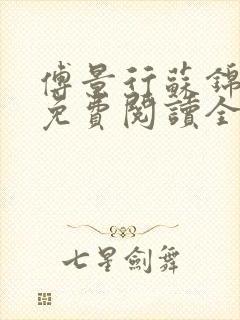 傅景行蘇錦
免費閱讀全
七星劍舞